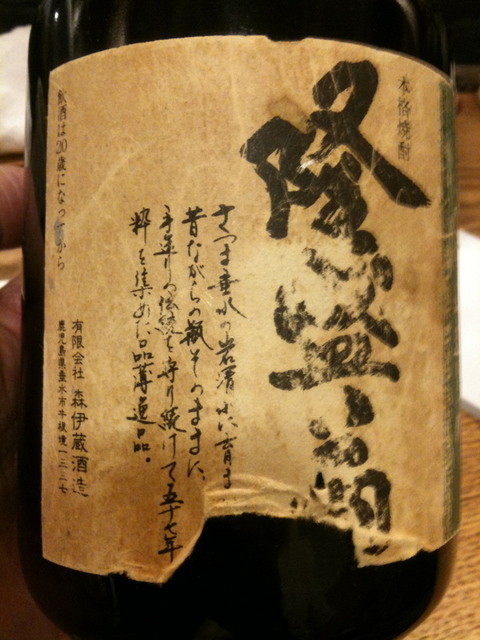 本格焼酎
隆盛翁
さつま垂水の岩層水に育まれ
昔ながらの瓶そのままに、
手造りの伝統を守り続けて五十七年
粋を集めた品薄逸品。
有限会社 森伊蔵酒造
鹿児島県垂水市牛根境一三三七
飲酒は20歳になってから